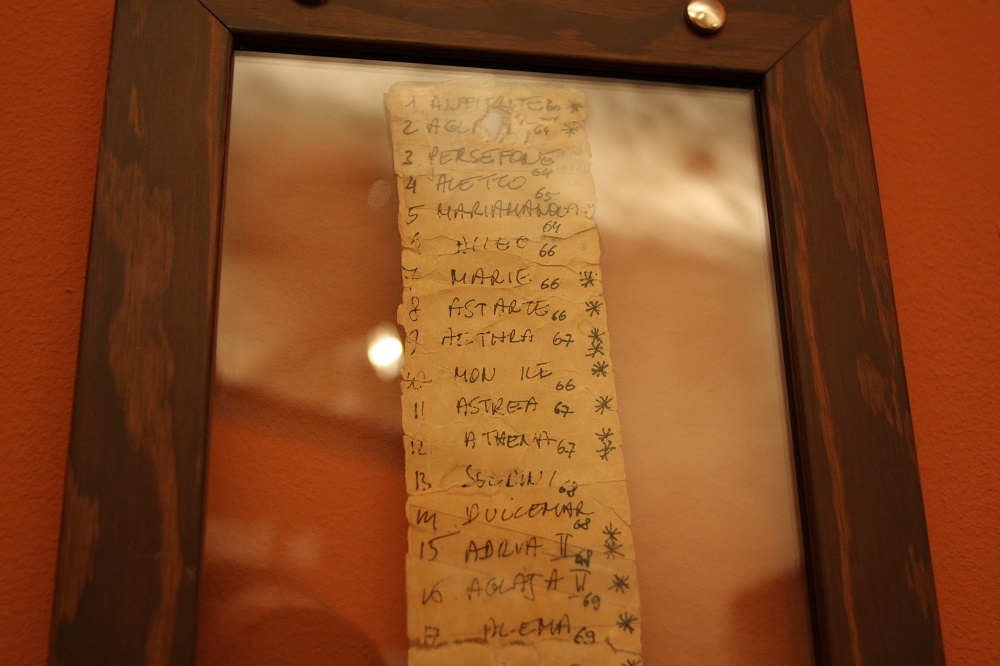 1 ANFITRITE *
2 64 *
3 PERSEFONE 64
4 ALETTO 65
5 64
6 66
7 MARIE 66 *
8 ASTARTE 66 *
9 AETHRA 67 * *
10 MON ILE 66 *
11 ASTREA 67 *
12 ATHENA 67 * *
13 68
14 DULCEMAR 68
15 ADRIA II 68 * *
16 AGLAJA II 69 *
17 ALEMA 69 *